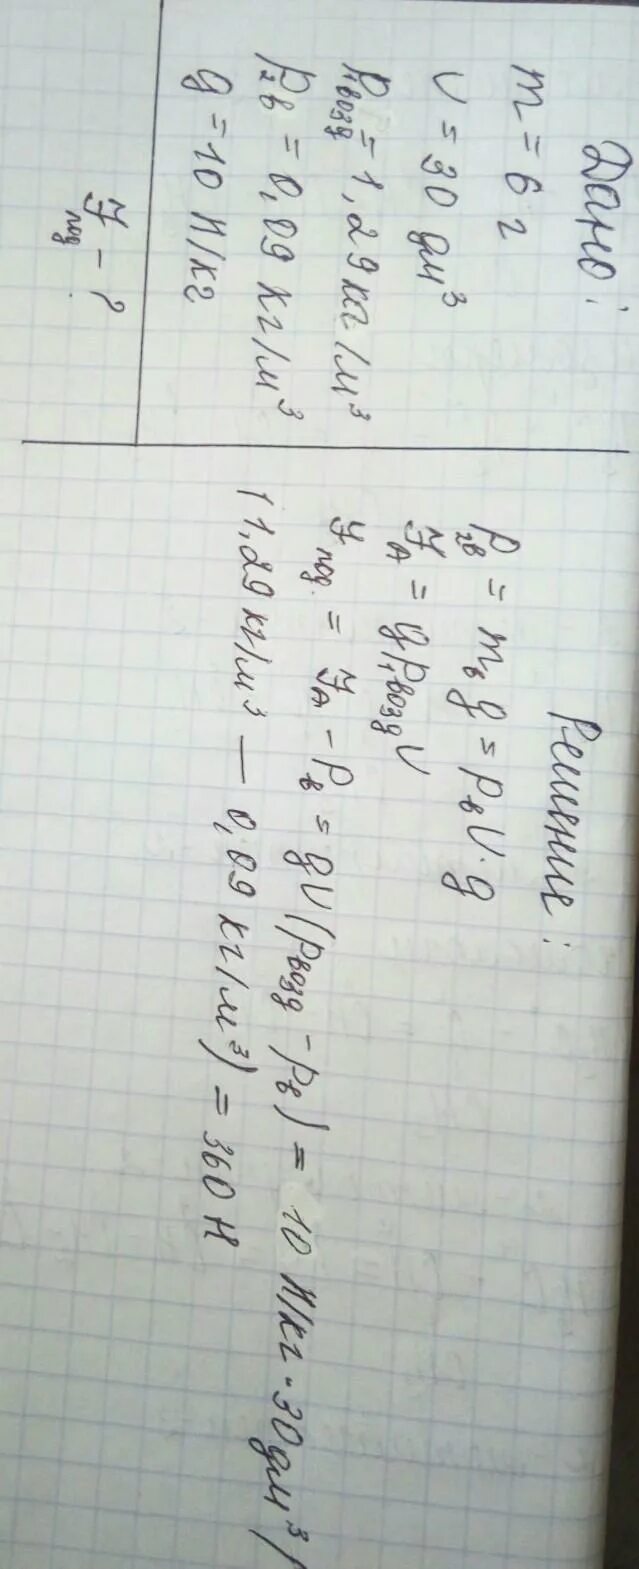 Дано:
m = 6 г
V = 30 дм³
ρ₁возд = 1,29 кг/м³
ρ₂в = 0,09 кг/м³
g = 10 Н/кг
Fпод - ?
Решение:
P₂в = mвg = ρвV·g
FА = gρ₁воздV
Fпод. = FА - Pв = gV(ρвозд - ρв) = 10 Н/кг·30дм³(
(1,29 кг/м³ — 0,09 кг/м³) = 360 Н